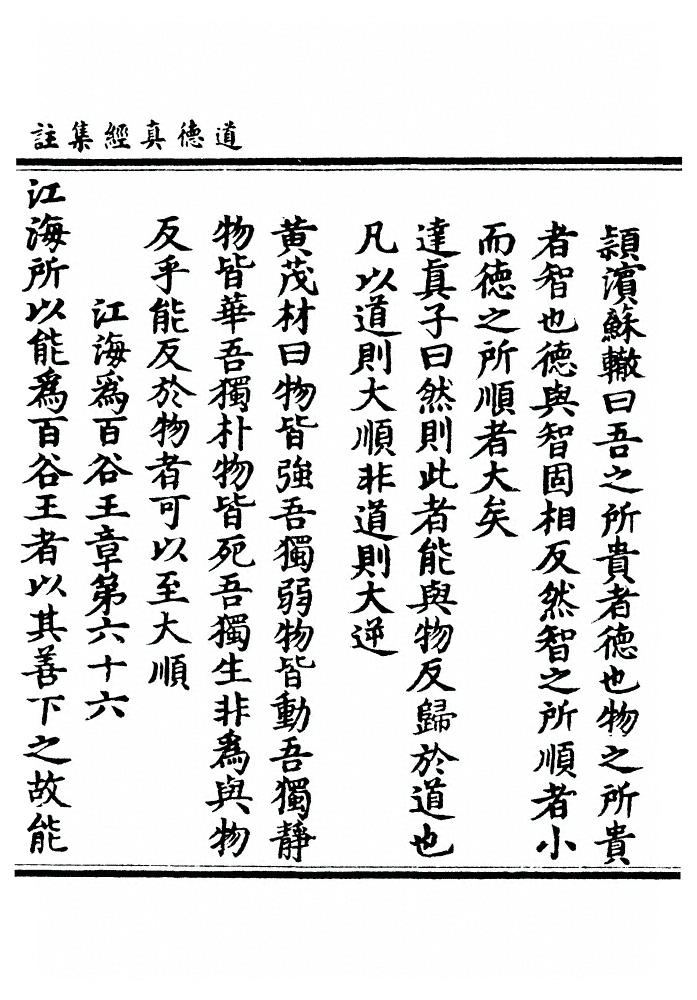 道德真經集註
頴濱蘇轍曰吾之所貴者德也物之所貴
者智也德與智固相反然智之所順者小
而德之所順者大矣
達真子曰然則此者能與物反歸於道也
凡以道則大順非道則大逆
黃茂材曰物皆強吾獨弱物皆動吾獨靜
物皆華吾獨朴物皆死吾獨生非為與物
反乎能反於物者可以至大順
江海為百谷王章第六十六
江海所以能為百谷王者以其善下之故能